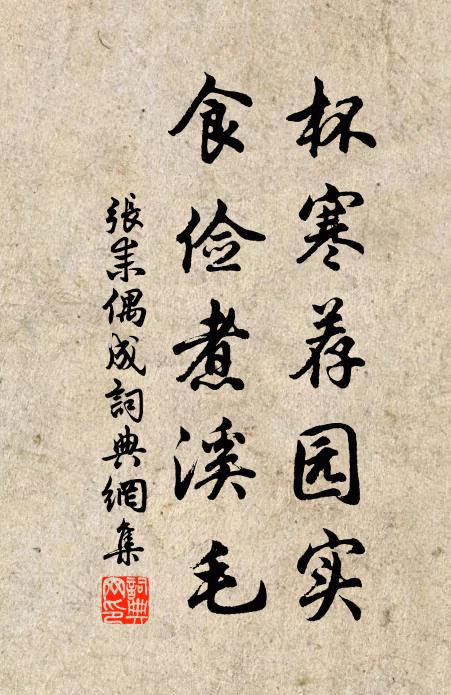 杯寒荐园实
食俭煮溪毛
張耒偶成詞典網集
詞典網印